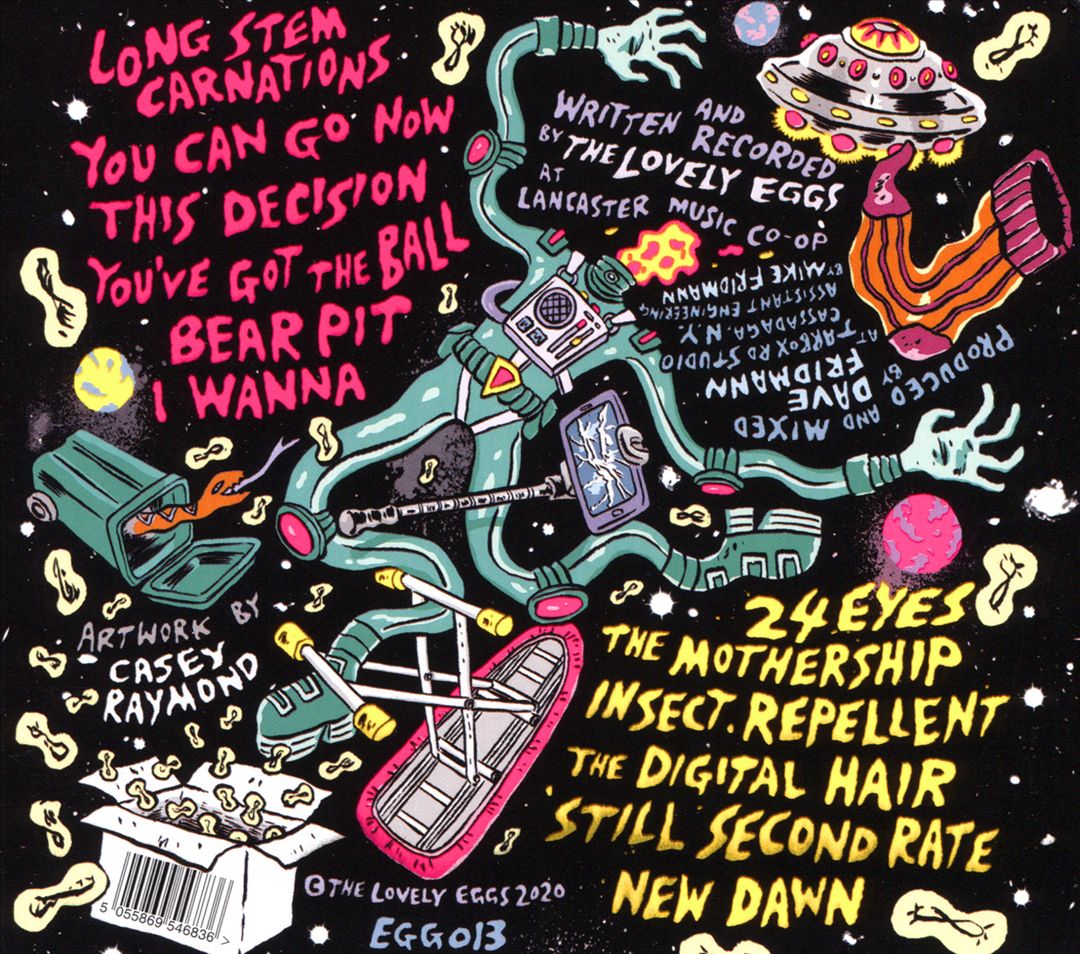 LONG STEM
CARNATIONS
YOU CAN GO NOW
THIS DECISION
YOU'VE GOT THE BALL
BEAR PIT
I WANNA
WRITTEN AND RECORDED
BY THE LOVELY EGGS
AT
LANCASTER MUSIC CO-OP
PRODUCED
AND MIXED BY
DAVE
FRIDMANN
AT TARBOX RD STUDIO
CASSADAGA. N.Y.
ASSISTANT ENGINEERING
BY MIKE FRIDMANN
ARTWORK BY
CASEY
RAYMOND
24 EYES
THE MOTHERSHIP
INSECT REPELLENT
THE DIGITAL HAIR
STILL SECOND RATE
NEW DAWN
5 055869 546836 >
©THE LOVELY EGGS 2020
EGG013